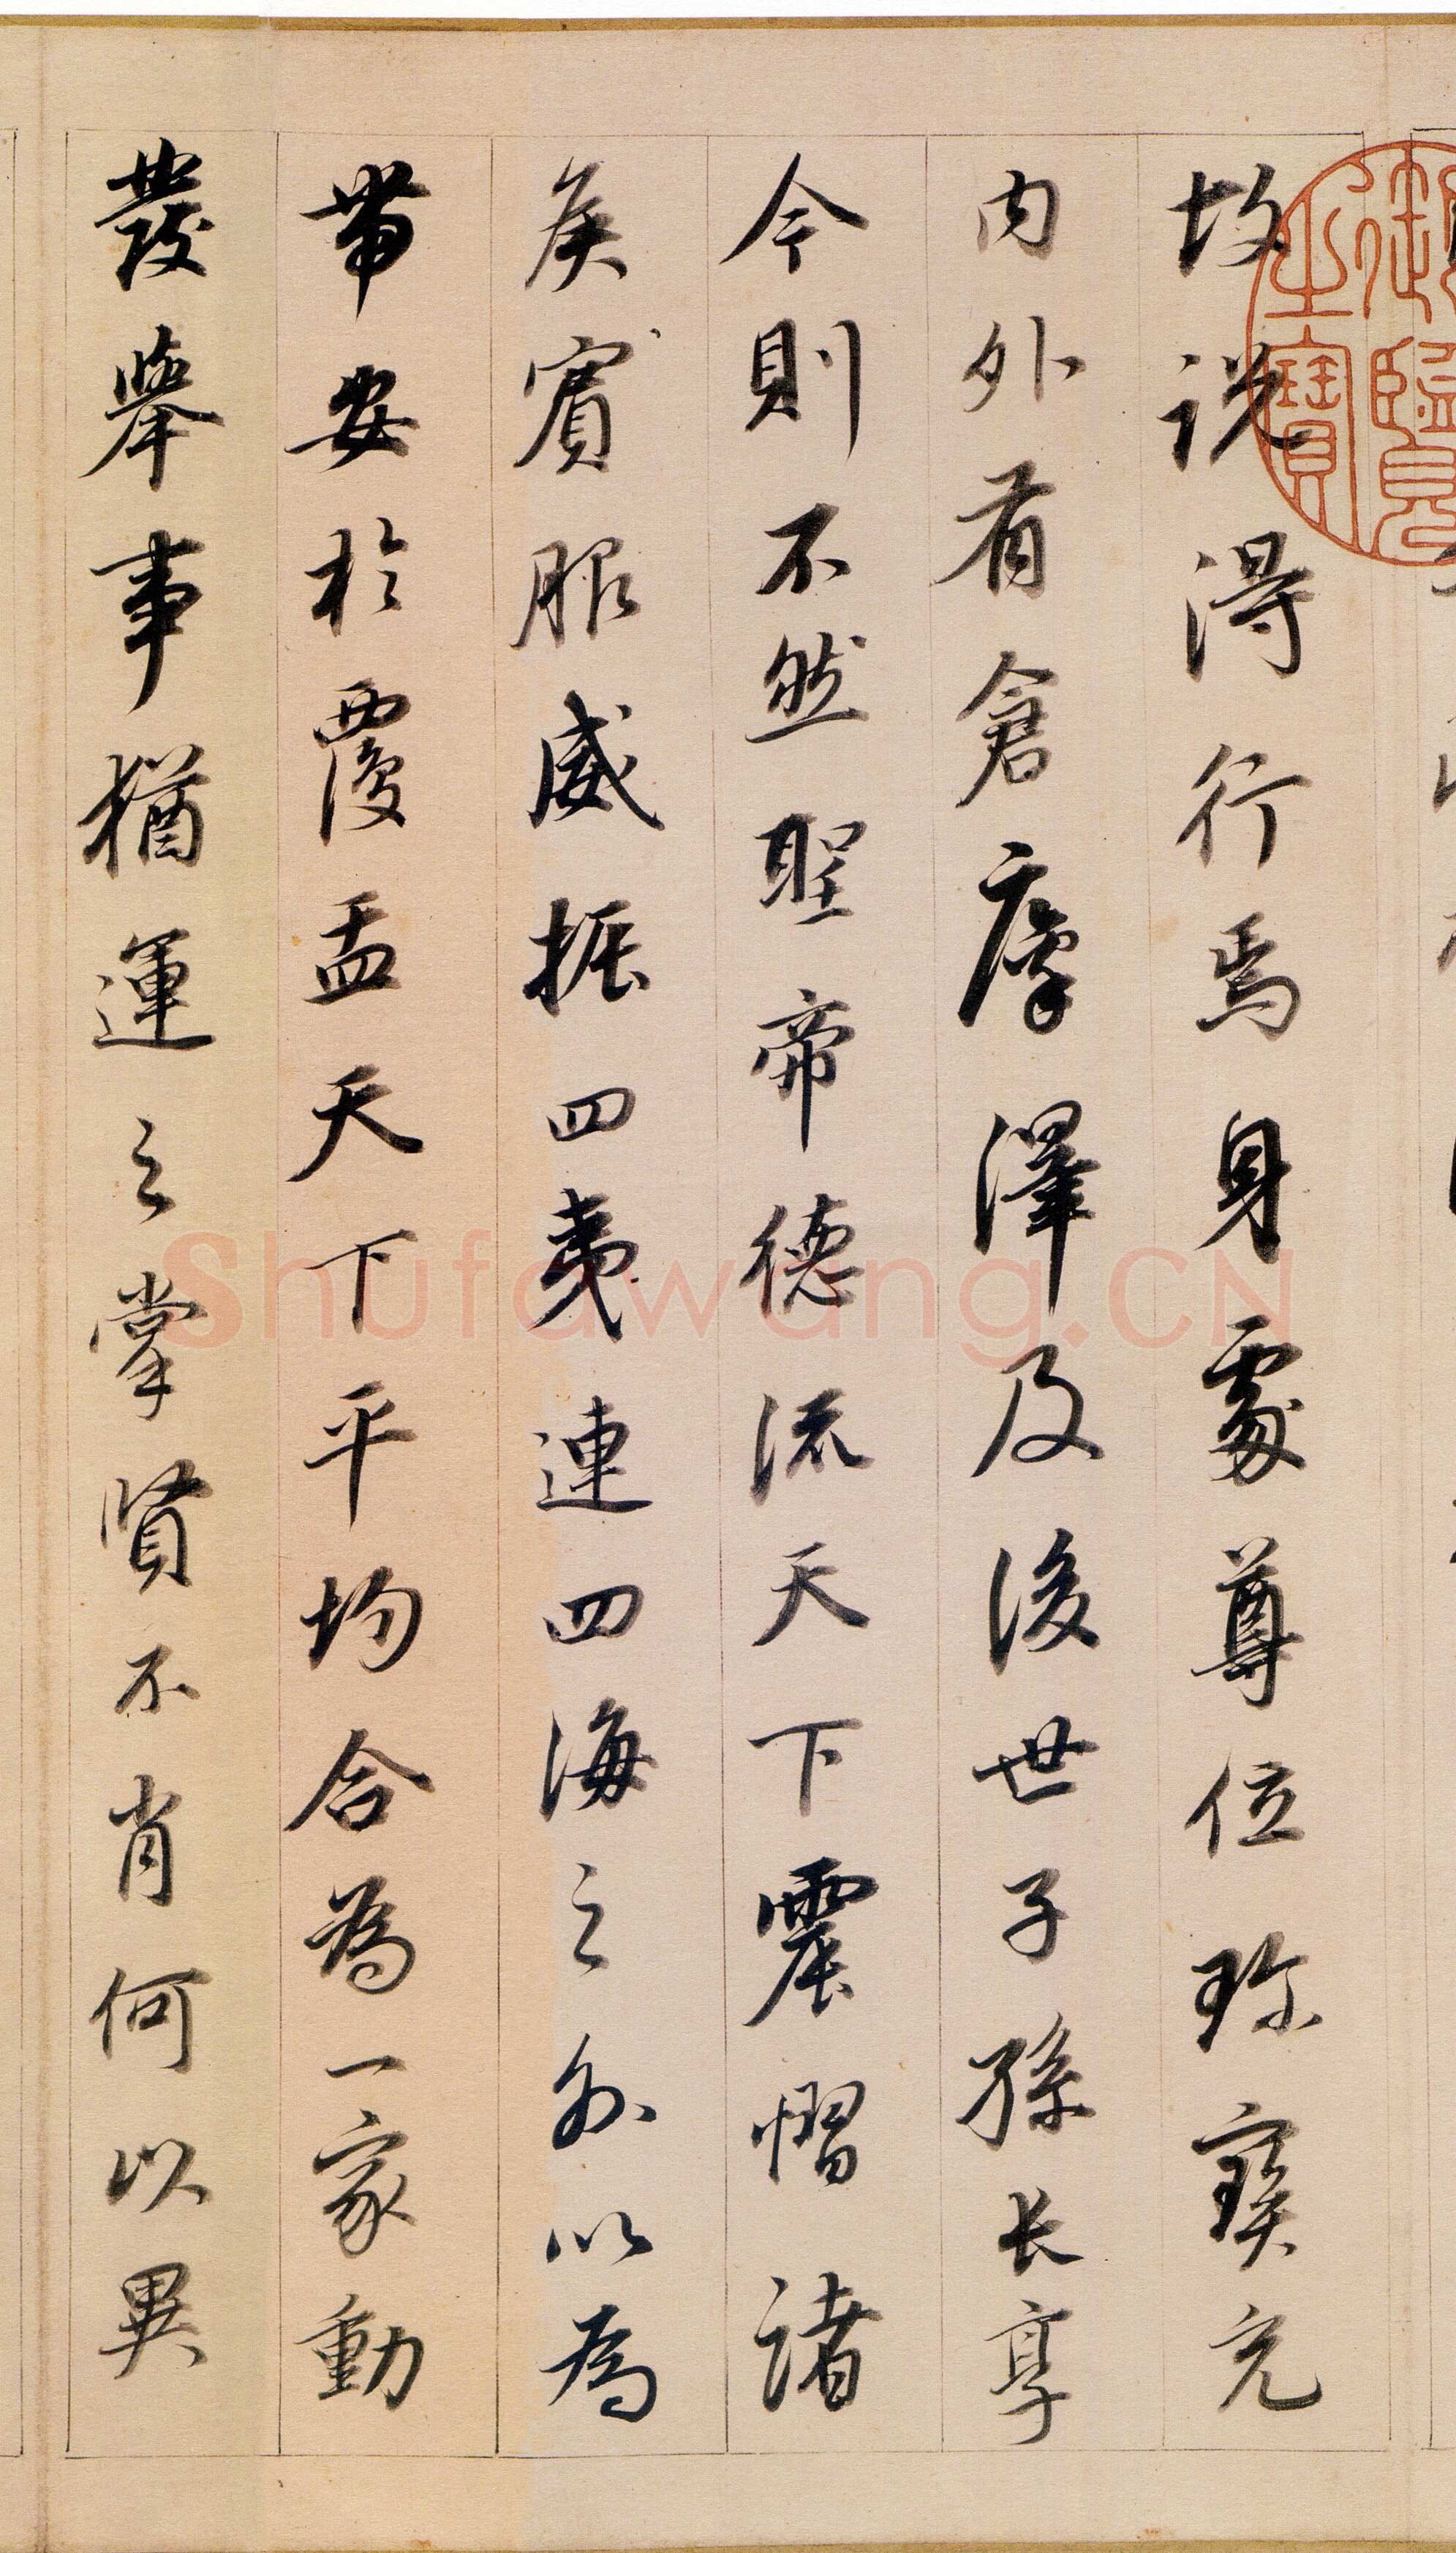 故說得行焉身處尊位珎寶充
內外有倉廩澤及後世子孫長享
今則不然聖帝德流天下震慴諸
矦賓服威振四夷連四海之外以為
帶安於覆盂天下平均合為一家動
發舉事猶運之掌賢不肖何以異
御覽之寶
Shufawang.CN